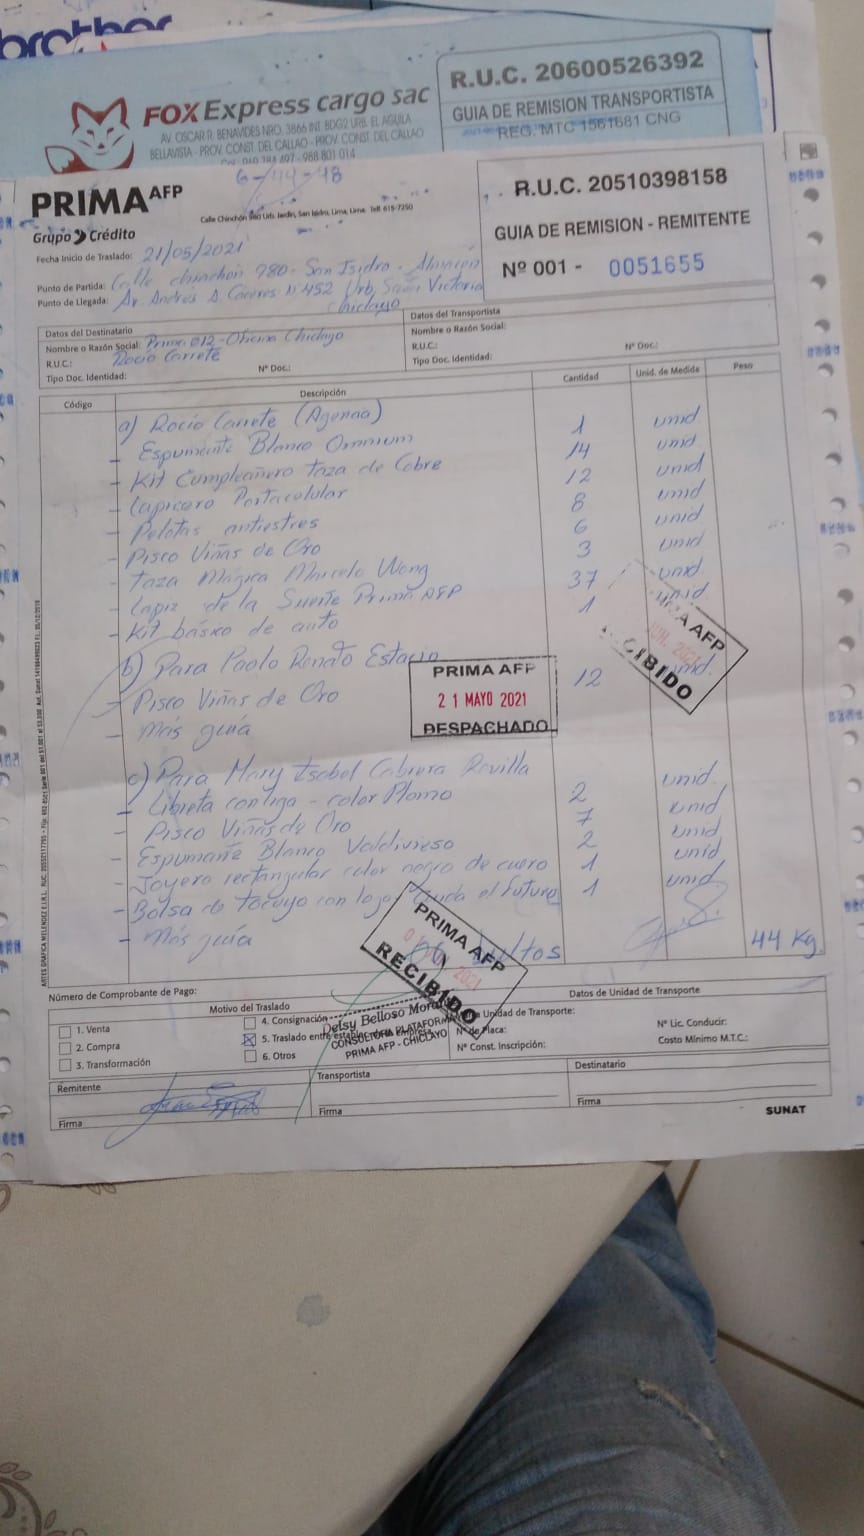 brother
FOX Express cargo sac
AV. OSCAR R. BENAVIDES NRO. 3866 INT. BDG2 URB. EL AGUILA
BELLAVISTA - PROV. CONST. DEL CALLAO - PROV. CONST. DEL CALLAO
988 801 014
R.U.C. 20600526392
GUIA DE REMISION TRANSPORTISTA
REG. MTC 1561581 CNG
6-44-48
PRIMA AFP
Grupo Crédito
Calle Chinchón 980 Urb. Jardín, San Isidro, Lima, Lima. Telf. 615-7250
R.U.C. 20510398158
GUIA DE REMISION - REMITENTE
Nº 001 - 0051655
Fecha Inicio de Traslado: 21/05/2021
Punto de Partida: Calle chinchon 980 - San Isidro - Almacén
Punto de Llegada: Av. Andrés A. Cáceres Nº452 Urb. Santa Victoria
Chiclayo
Datos del Destinatario
Nombre o Razón Social: Prima 012 - Oficina Chiclayo
R.U.C.: Rocio Carrete
Tipo Doc. Identidad: Nº Doc.:
Datos del Transportista
Nombre o Razón Social:
R.U.C.:
Tipo Doc. Identidad: Nº Doc.:
Código Descripción Cantidad Unid. de Medida Peso
a) Rocio Carrete (Agencia)
- Espumante Blanco Omnium 1 unid
- Kit Cumpleañero taza de Cobre 14 unid
- Lapicero Portacelular 12 unid
- Pelotas antiestres 8 unid
- Pisco Viñas de Oro 6 unid
- Taza Mágica Marcelo Wong 3 unid
- Lapiz de la Suerte Prima AFP 37 unid
- Kit básico de auto 1 unid
b) Para Paolo Renato Estacio
- Pisco Viñas de Oro 12 unid.
- Más guía
PRIMA AFP
21 MAYO 2021
DESPACHADO
PRIMA AFP
JUN. 2021
RECIBIDO
c) Para Mary Isabel Cabrera Revilla
- Libreta con liga - color Plomo 2 unid.
- Pisco Viñas de Oro 7 unid
- Espumante Blanco Valdivieso 2 unid
- Joyero rectangular color negro de cuero 1 unid
- Bolsa de tocuyo con logo el futuro 1 unid
- Más guía bultos 44 Kg
PRIMA AFP
JUN 2021
RECIBIDO
Número de Comprobante de Pago:
Motivo del Traslado
1. Venta
2. Compra
3. Transformación
4. Consignación
5. Traslado entre establec.
6. Otros
Delsy Belloso
CONSULTORIA PLATAFORMA
PRIMA AFP - CHICLAYO
Datos de Unidad de Transporte
Unidad de Transporte:
Nº de Placa:
Nº Const. Inscripción:
Nº Lic. Conducir:
Costo Mínimo M.T.C.:
Remitente
Firma
Transportista
Firma
Destinatario
Firma
SUNAT